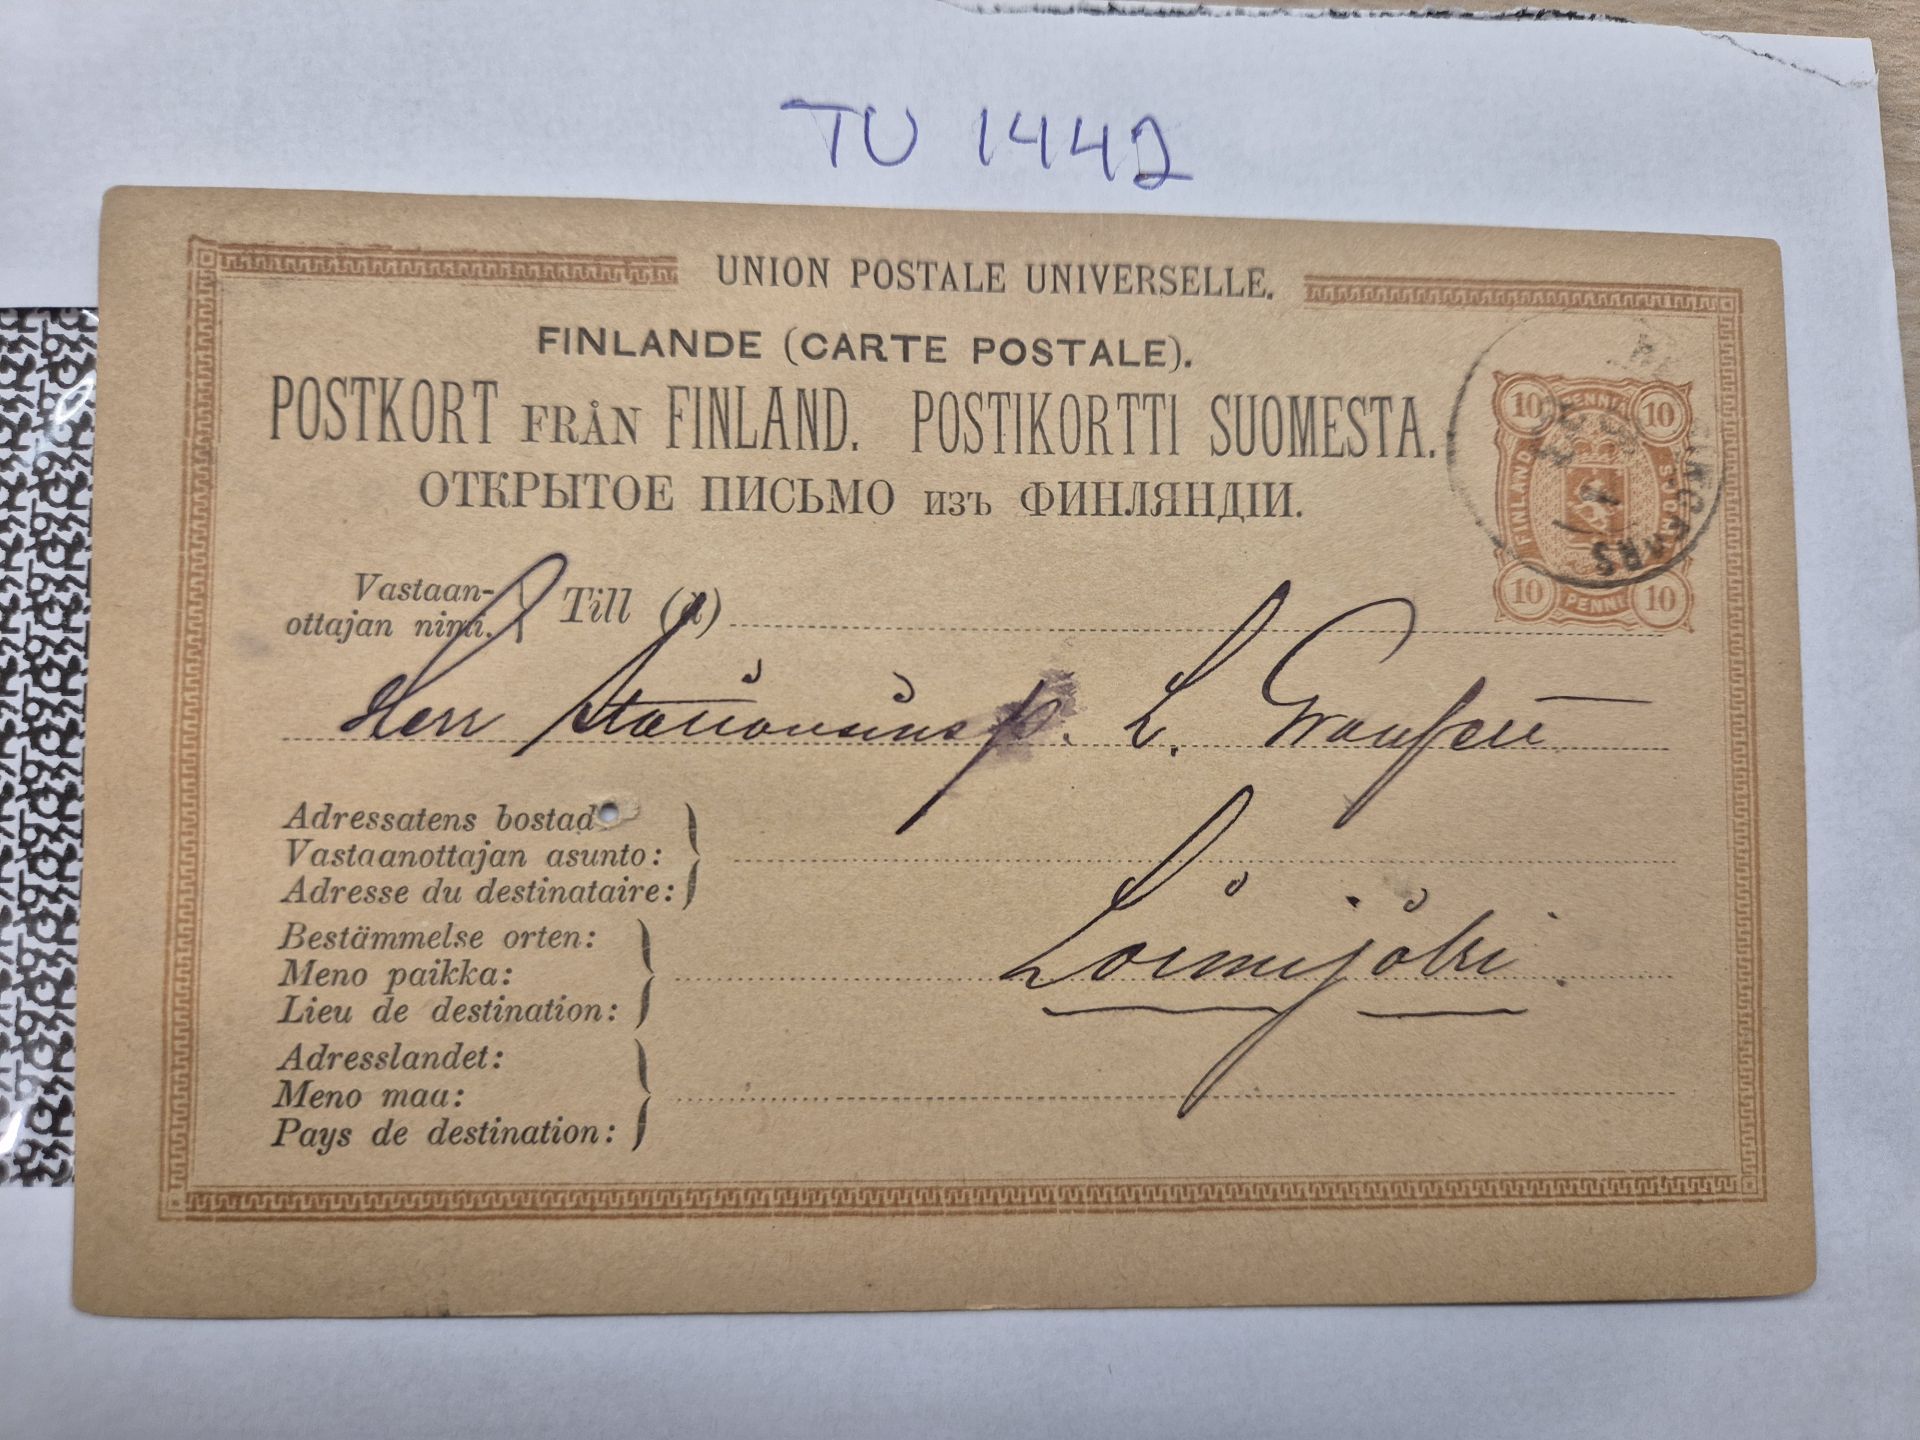 TU 1442
UNION POSTALE UNIVERSELLE.
FINLANDE (CARTE POSTALE).
POSTKORT FRÅN FINLAND. POSTIKORTTI SUOMESTA.
ОТКРЫТОЕ ПИСЬМО изъ ФИНЛЯНДІИ.
10 PENNIÄ 10
FINLAND. SUOMI
10 PENNI 10
Vastaan-
ottajan nimi. Till (à)
Herr Stationsinsp. L.
Adressatens bostad
Vastaanottajan asunto:
Adresse du destinataire:
Loimijoki
Bestämmelse orten:
Meno paikka:
Lieu de destination:
Adresslandet:
Meno maa:
Pays de destination: